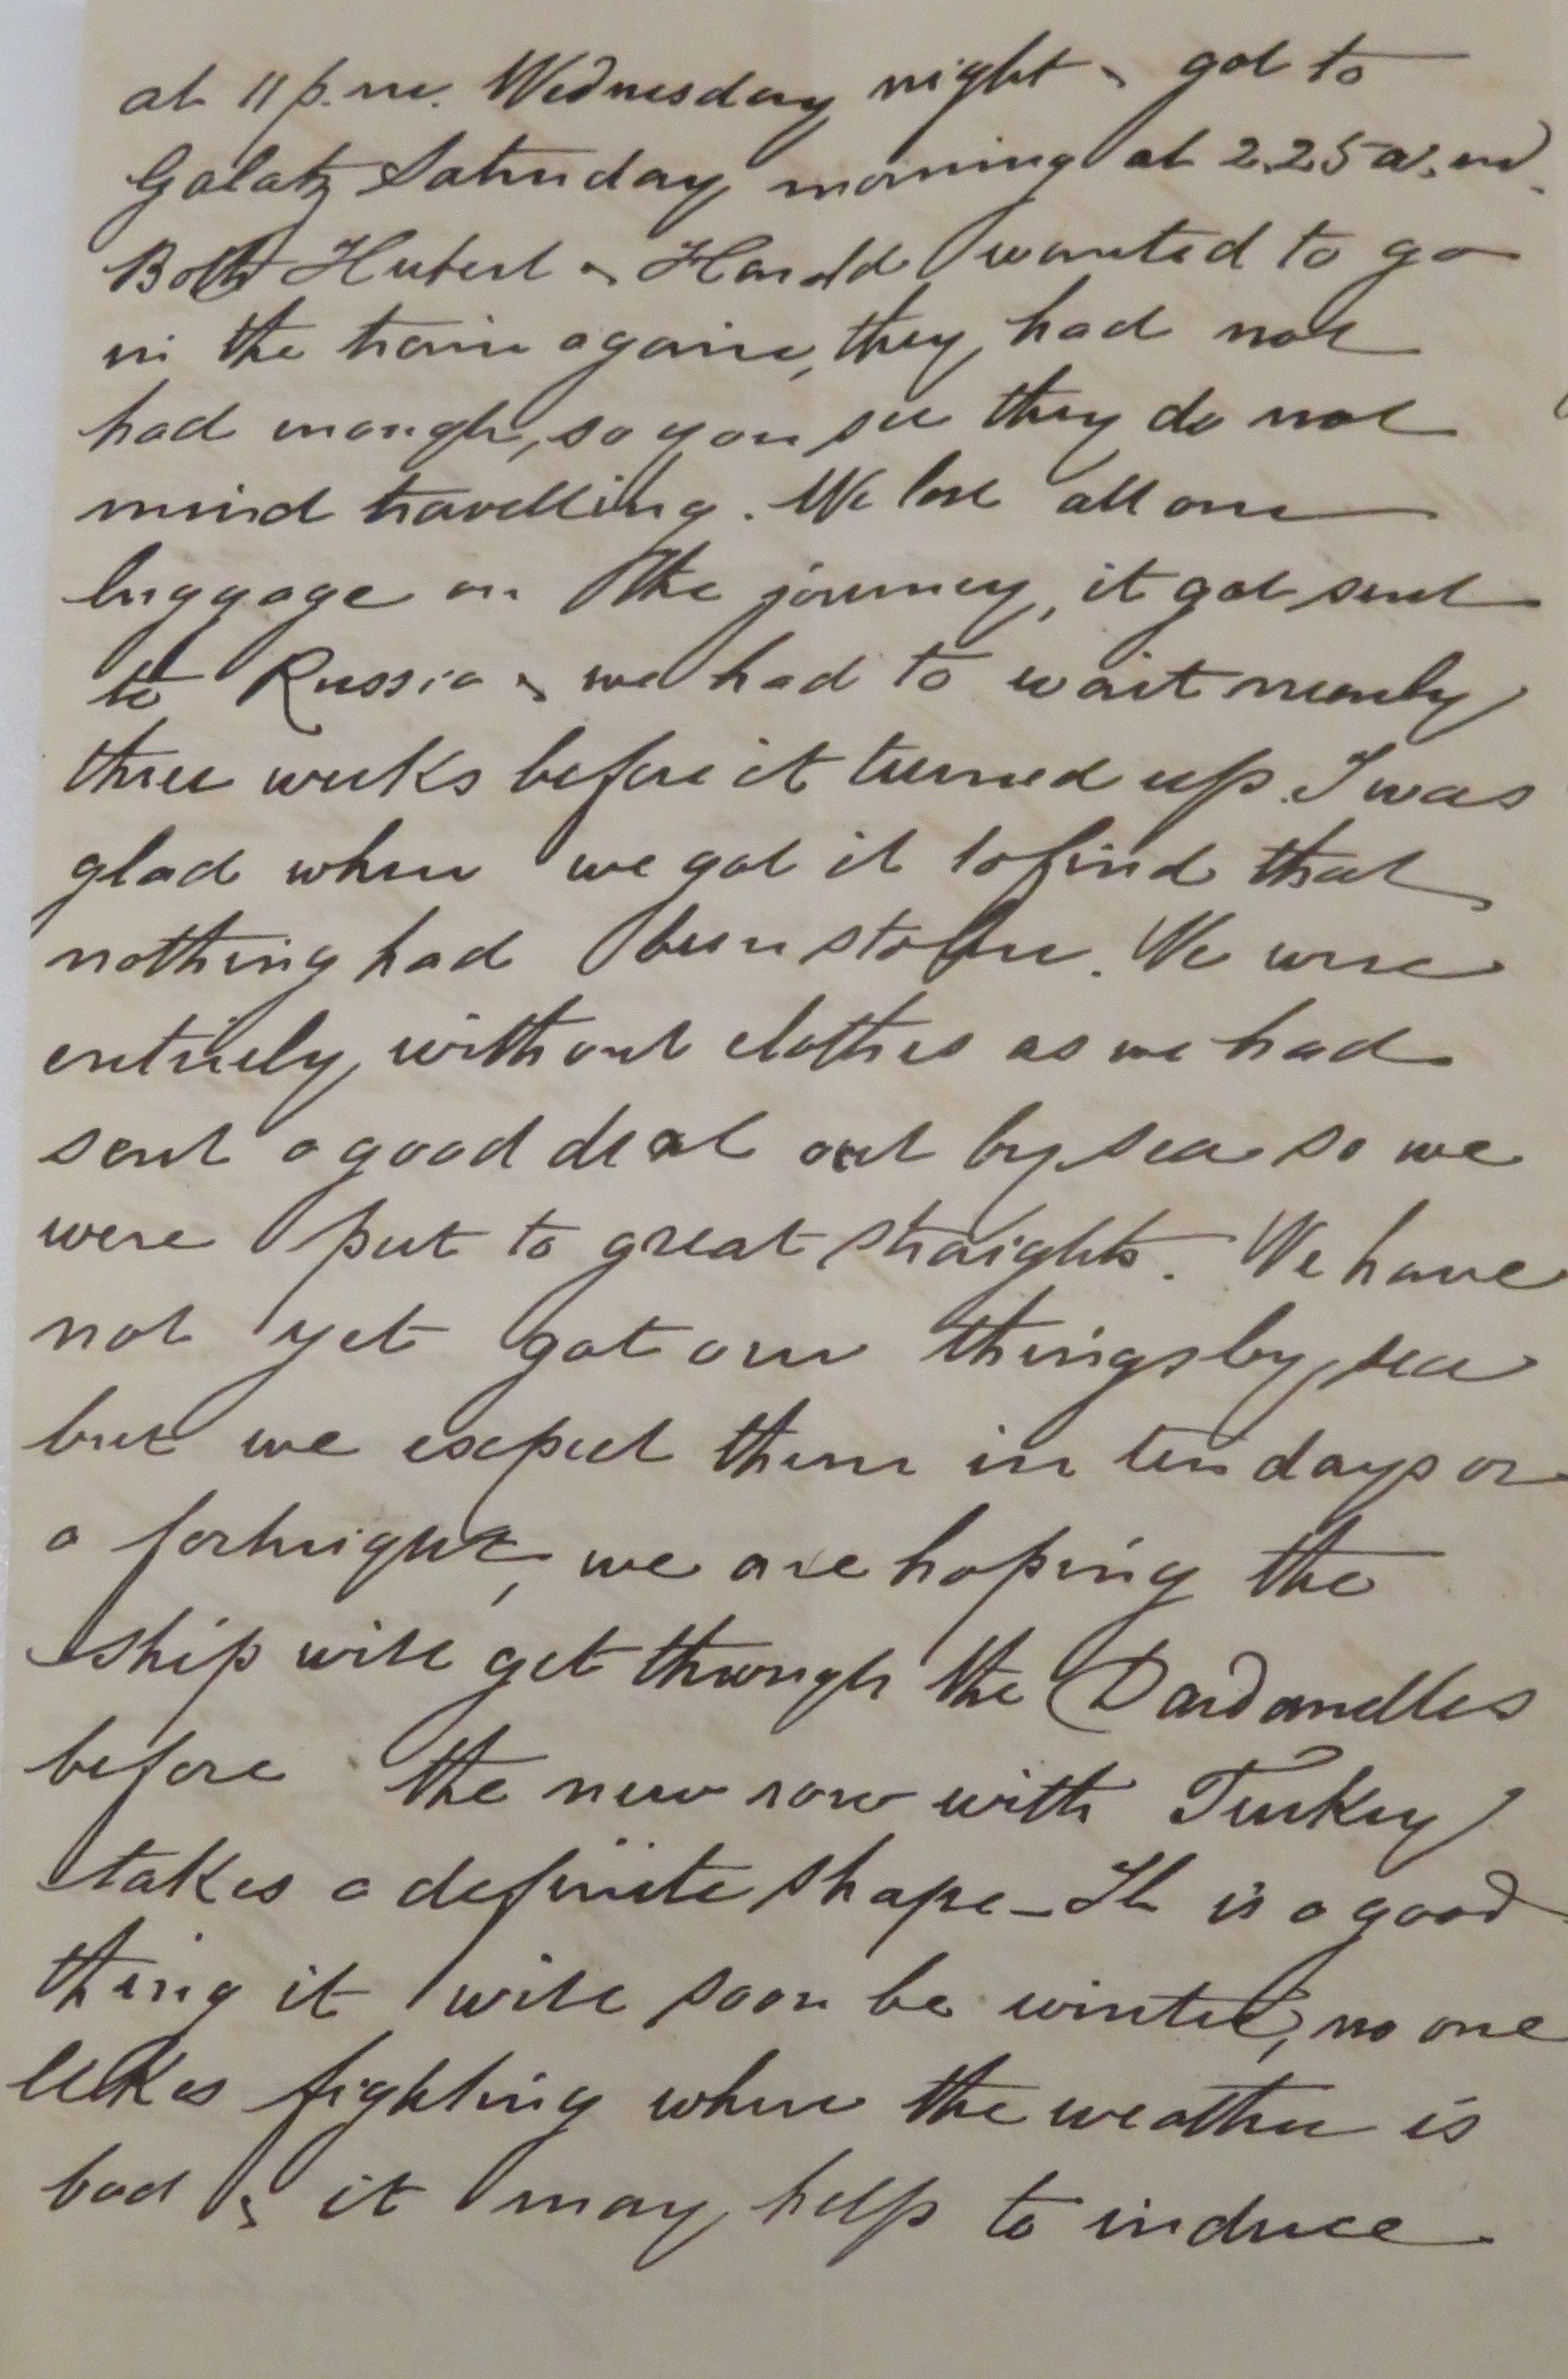 at 11 p.m. Wednesday night & got to
Galatz Saturday morning at 2.25 a.m.
Both Hubert & Harold wanted to go
in the train again, they had not
had enough, so you see they do not
mind travelling. We lost all our
luggage on the journey, it got sent
to Russia & we had to wait nearly
three weeks before it turned up. I was
glad when we got it to find that
nothing had been stolen. We were
entirely without clothes as we had
sent a good deal out by sea so we
were put to great straights. We have
not yet got our things by sea
but we expect them in ten days or
a fortnight, we are hoping the
ship will get through the Dardanelles
before the new row with Turkey
takes a definite shape - It is a good
thing it will soon be winter, no one
likes fighting when the weather is
bad & it may help to induce